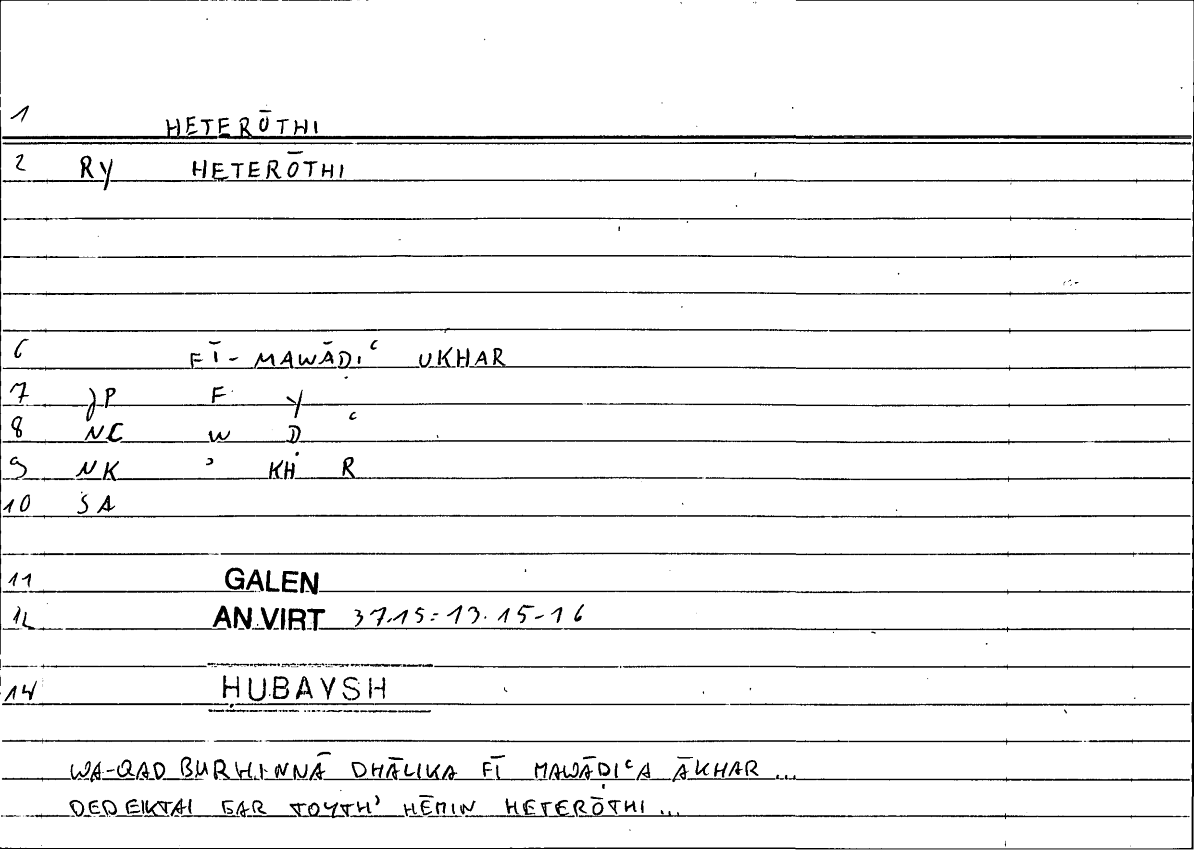 1 HETERŌTHI
2 RY HETERŌTHI
6 FĪ-MAWĀḌIʿ UKHAR
7 JP F Y
8 NC W Ḍ ʿ
9 NK ʾ KH R
10 SA
11 GALEN
12 AN.VIRT 37.15=13.15-16
14 ḤUBAYSH
WA-QAD BURHINNĀ DHĀLIKA FĪ MAWĀḌIʿA ĀKHAR ...
DEDEIKTAI GAR TOYTH' HĒMIN HETERŌTHI ...